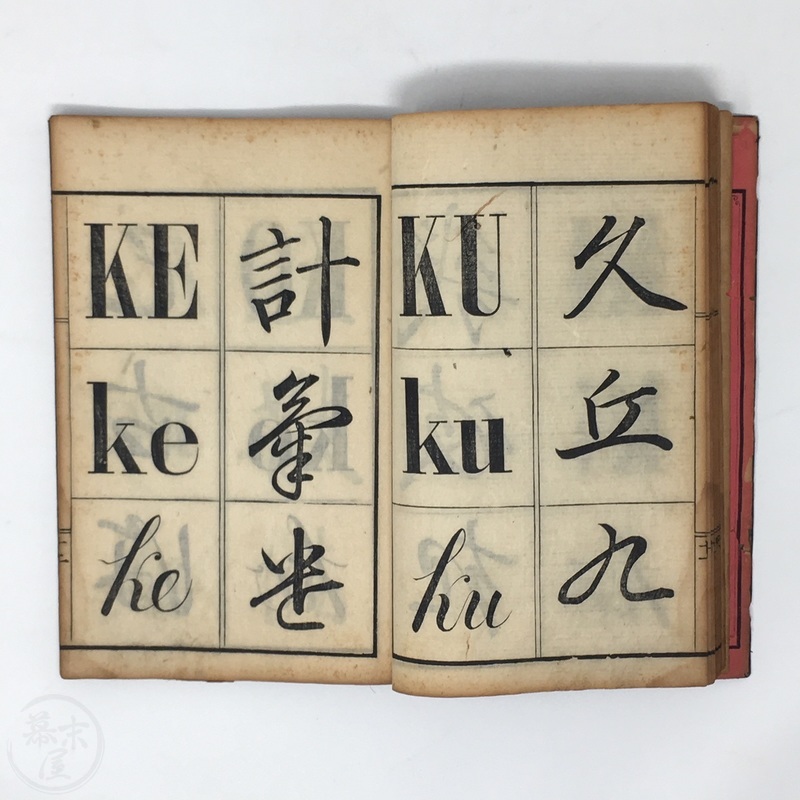 久
丘
九
KU
ku
ku
計
氣
KE
ke
ke
幕末屋